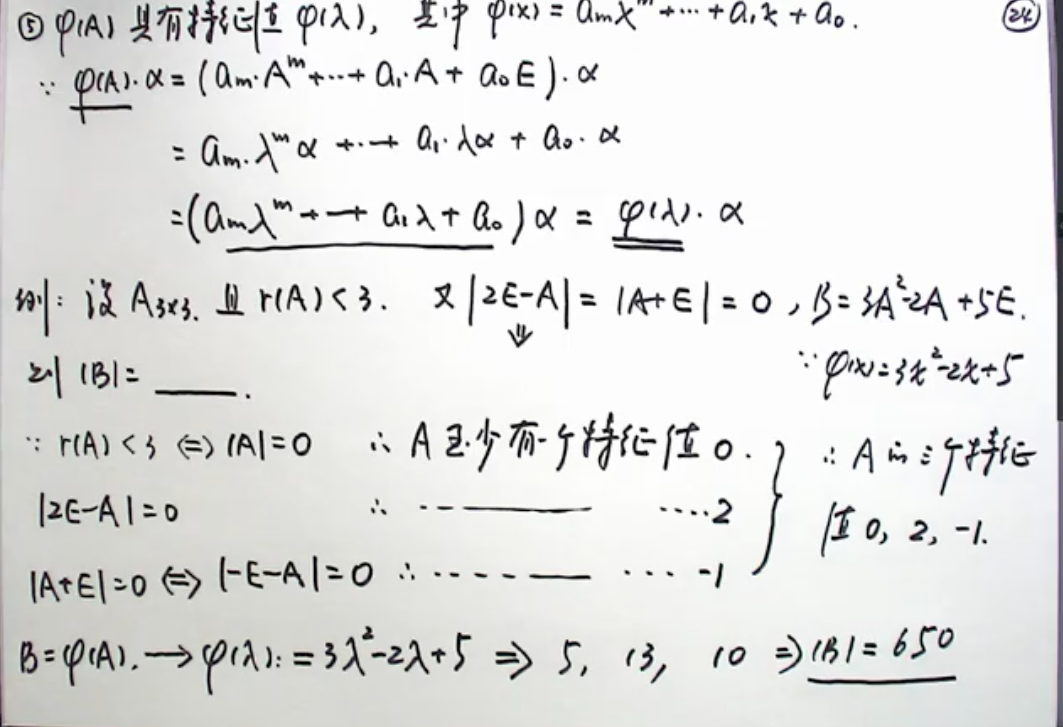 ⑤ φ(A) 具有特征值 φ(λ), 其中 φ(x) = aₘxᵐ+⋯+a₁x+a₀. ㉔
∵ φ(A)·α = (aₘ·Aᵐ+⋯+a₁·A+a₀E)·α
= aₘ·λᵐα+⋯+a₁·λα+a₀·α
=(aₘλᵐ+⋯+a₁λ+a₀)α = φ(λ)·α
例: 设 A₃ₓ₃. 且 r(A)<3. 又 |2E-A| = |A+E| = 0, B=3A²-2A+5E.
⇓
则 |B|= ____. ∵ φ(x)=3x²-2x+5
∵ r(A)<3 ⇔ |A|=0 ∴ A至少有一个特征值 0.
|2E-A|=0 ∴ ---——— ····2
|A+E|=0 ⇔ |-E-A|=0 ∴ -----—— ··· -1
∴ A的三个特征
值 0, 2, -1.
B=φ(A). → φ(λ): =3λ²-2λ+5 ⇒ 5, 13, 10 ⇒ |B|=650